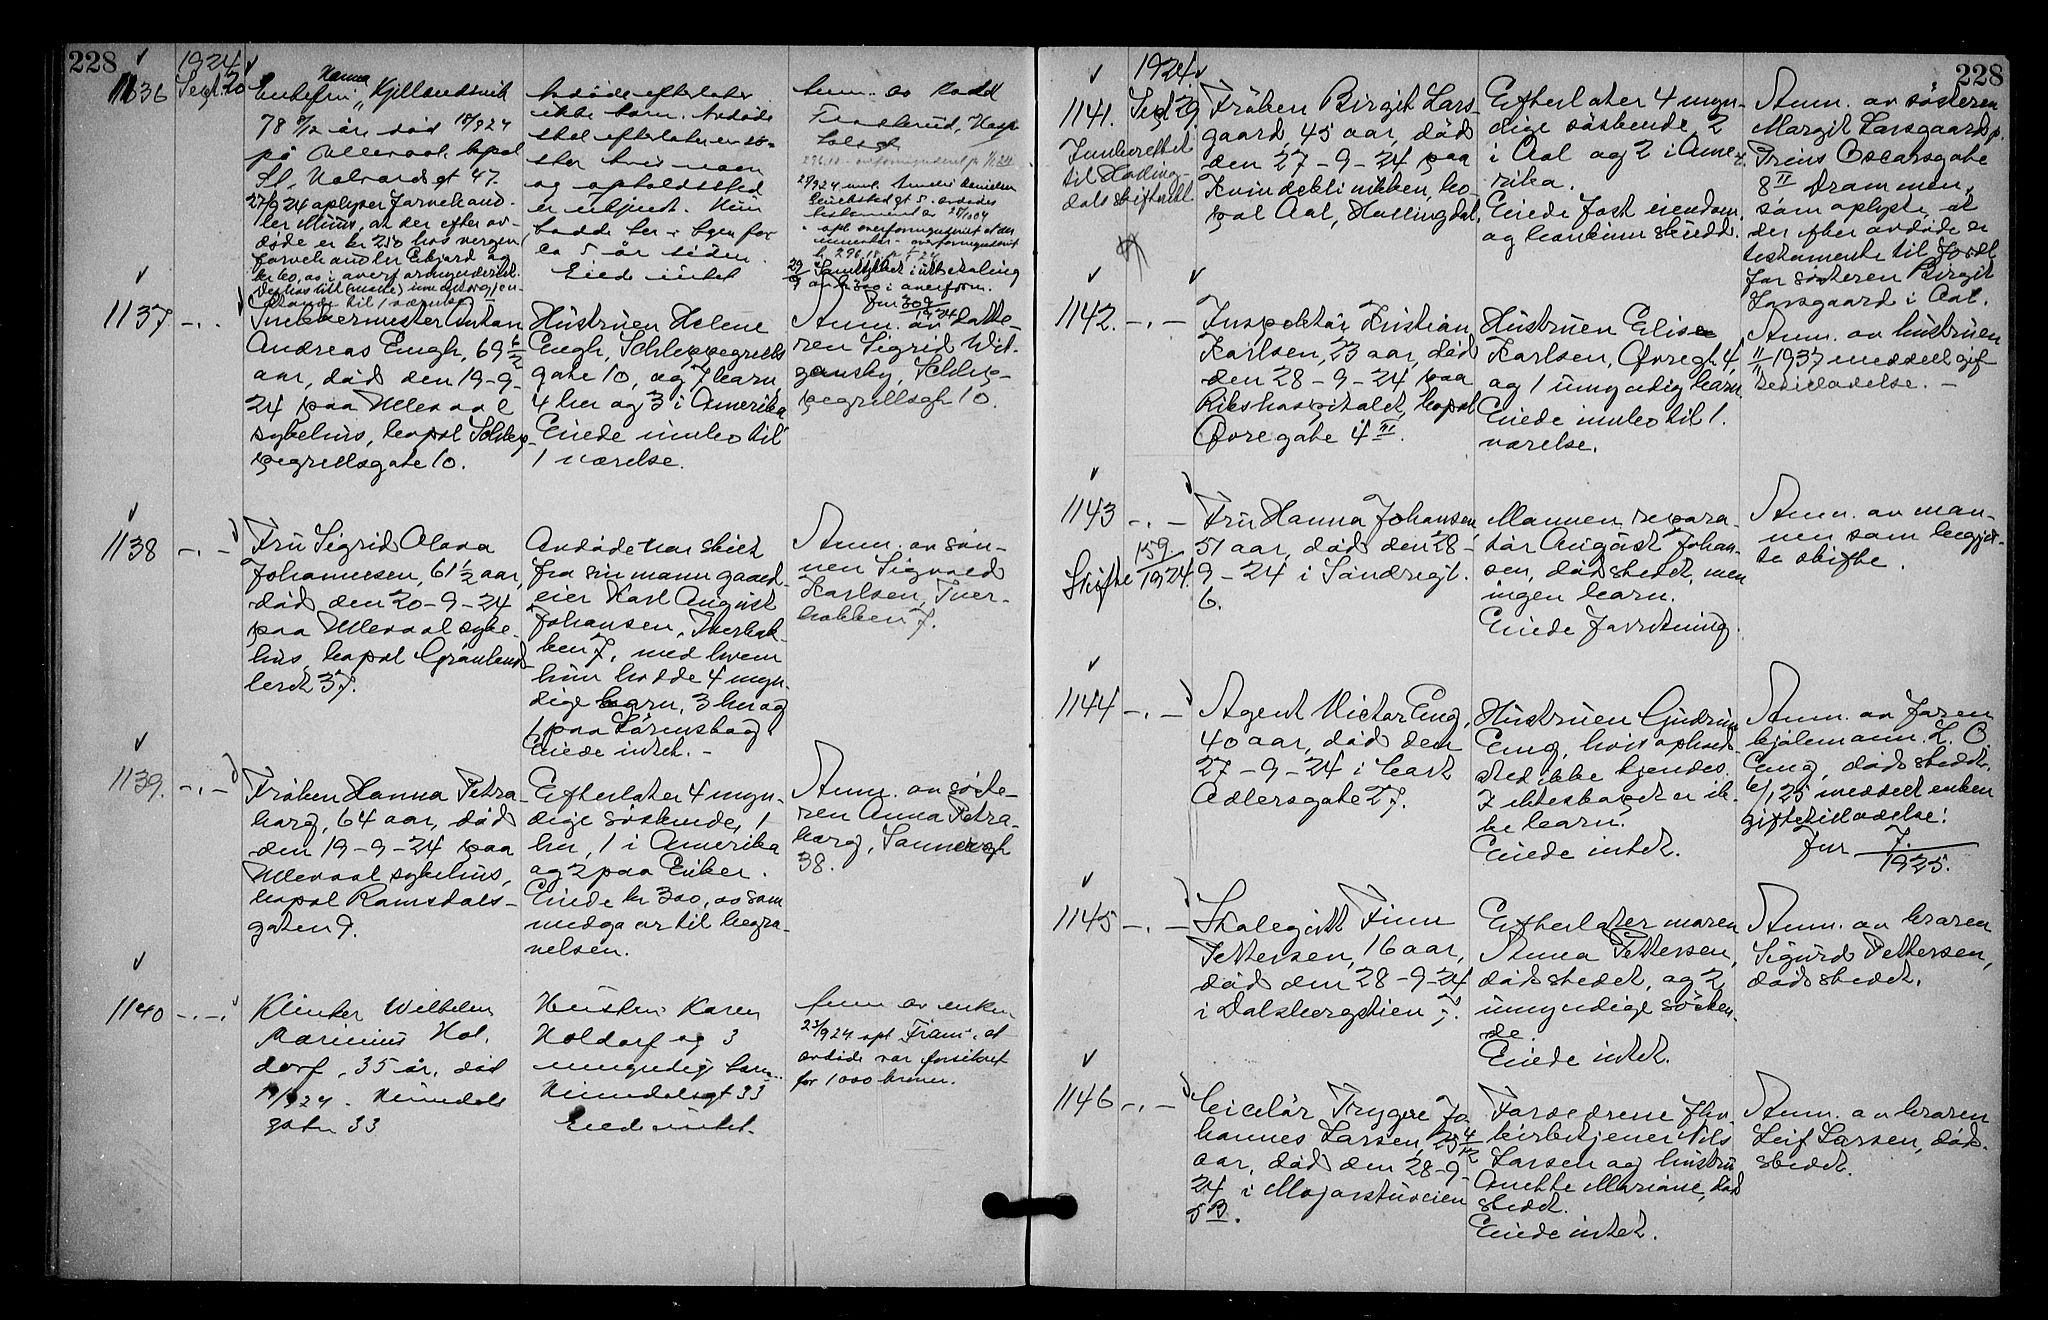 228
1924
1136
Sept. 20
Enkefru Hanna Kjellandsvik
78 år død 18/9 24
på Ullevaal, bopæl
St. Halvards gt 47.
27/9 24 oplyser
døde er kr 250 hos
Avdøde efterlater
ikke barn. Avdøde
skal efterlate en sø-
ster hvis navn
og opholdssted
er ukjent. Hun
bodde her i byen for
ca 5 år siden.
Eiede intet
Anm. av
29/9 Samtykket i utbetaling
av kr 300 i overform.
Jur 309/1924
1137 -"-
Snekkermester Anton
Andreas Engh, 69 6/12
aar, død den 19-9-
24 paa Ullevaal
sykehus, bopæl Schlep-
pegrellsgate 10.
Hustruen Helene
Engh, Schleppegrells
gate 10, og 7 barn
4 her og 3 i Amerika
Eiede innbo til
1 værelse.
Anm. av datte-
ren Sigrid Wil-
gansky, Schlep-
pegrellsgt 10.
1138 -"-
Fru Sigrid Olava
Johannesen, 61 1/2 aar,
død den 20-9-24
paa Ullevaal syke-
hus, bopæl Grønlands
leret 37.
Avdøde var skilt
fra sin mann gaard-
eier Karl August
Johansen, Tverbak-
ken 7, med hvem
hun hadde 4 myn-
dige barn, 3 her og
1 paa Sørenskog
Eiede intet. -
Anm. av søn-
nen Sigvald
Karlsen, Tver-
bakken 7.
1139. -"-
Frøken Hanna Petra
Borg, 64 aar, død
den 19-9-24 paa
Ullevaal sykehus,
bopæl Ramsdals-
gaten 9.
Efterlater 4 myn-
dige søskende, 1
her, 1 i Amerika
og 2 paa Eiker.
Eiede kr 300,00 som
medgaar til begra-
velsen.
Anm. av søste-
ren Anna Petra
Borg, Sannergt
38.
1140 -"-
Klinker Wilhelm
Marinius Hol-
dorf, 35 år, død
19/9 24. Heimdals
gaten 33
Hustru Karen
Holdorf og 3
umyndige barn
Heimdalsgt 33
Eiede intet.
Anm av enken
23/9 24 opl. "Fram" at
avdøde var forsikret
for 1000 kroner.
228
1924
1141.
Sept 29
Innberettet
til Halling-
dals skifterett
Frøken Birgit Lars-
gaard, 45 aar, død
den 27-9-24 paa
Kvindeklinikken, bo-
pæl Aal, Hallingdal.
Efterlater 4 myn-
dige søskende, 2
i Aal og 2 i Ame-
rika.
Eiede fast eiendom
og kontinn skudd.
Anm. av søsteren
Margit Larsgaard,
Prins Oscarsgate
8 II Drammen,
som oplyste, at
der efter avdøde er
testamente til fordel
for søsteren Birgit
Larsgaard i Aal.
1142. -"-
Inspektør Kristian
Karlsen, 23 aar, død
den 28-9-24 paa
Rikshospitalet, bopæl
Øvregate 4 III.
Hustruen Elise
Karlsen, Øvregt. 4,
og 1 umyndig barn
Eiede innbo til 1
værelse.
Anm. av hustruen
11/11 1937 meddelt gif-
tetilladelse. -
1143 -"-
Skifte 159/1924.
Fru Hanna Johansen,
51 aar, død den 28-
9-24 i Sandregt.
6.
Mannen repara-
tør August Johan-
sen, dødsstedet, men
ingen barn.
Eiede forretning.
Anm. av man-
nen som begjær-
te skifte.
1144 -"-
Agent Victor Eng,
40 aar, død den
27-9-24 i Cort
Adlersgate 27.
Hustruen Gudrun
Eng, hvis ophold-
sted ikke kjendes.
I ekteskapet er ik-
ke barn.
Eiede intet.
Anm. av faren
kjølemann L. O.
Eng, dødsstedet.
6/1 25 meddelt enken
giftetilladelse.
Jur 7./1925.
1145 -"-
Skolegutt Finn
Pettersen, 16 aar,
død den 28-9-24
i Dalsbergstien 7.
Efterlater moren
Anna Pettersen,
dødsstedet, og 2
umyndige søsken-
de
Eiede intet.
Anm. av broren
Sigurd Pettersen,
dødsstedet.
1146 -"-
Ciselør Trygve Jo-
hannes Larsen, 25 4/12
aar, død den 28-9-
24 i Majorstuveien
5 B.
Forældrene
Nils
Larsen og hustru
Anette Mariane, død
stedet.
Eiede intet.
Anm. av broren
Leif Larsen, død-
stedet.